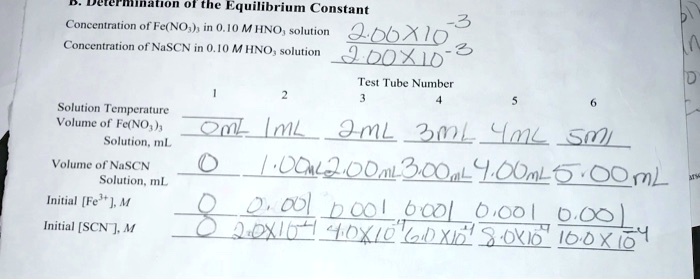 B. Determination of the Equilibrium Constant
Concentration of Fe(NO₃)₃ in 0.10 M HNO₃ solution 2.00X10⁻³
Concentration of NaSCN in 0.10 M HNO₃ solution 2.00X10⁻³
Test Tube Number
1 2 3 4 5 6
Solution Temperature
Volume of Fe(NO₃)₃ Solution, mL 0mL 1mL 2mL 3mL 4mL 5ml
Volume of NaSCN Solution, mL 0 1.00mL 2.00mL 3.00mL 4.00mL 5.00mL
Initial [Fe³⁺], M 0 0.001 0.001 0.001 0.001 0.001
Initial [SCN⁻], M 0 2.0X10⁻⁴ 4.0X10⁻⁴ 6.0X10⁻⁴ 8.0X10⁻⁴ 10.0X10⁻⁴